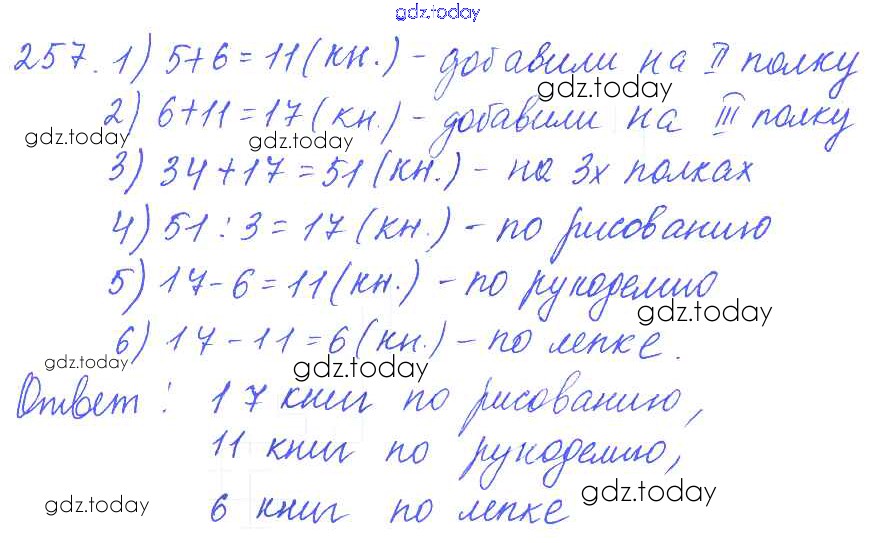 gdz.today
257. 1) 5+6=11(кн.) - добавили на II полку
gdz.today
2) 6+11=17(кн.) - добавили на III полку
gdz.today gdz.today
3) 34+17=51(кн.) - на 3х полках
4) 51:3=17(кн.) - по рисованию
5) 17-6=11(кн.) - по рукоделию
gdz.today
6) 17-11=6(кн.) - по лепке.
gdz.today gdz.today
Ответ: 17 книг по рисованию,
11 книг по рукоделию,
gdz.today gdz.today
6 книг по лепке